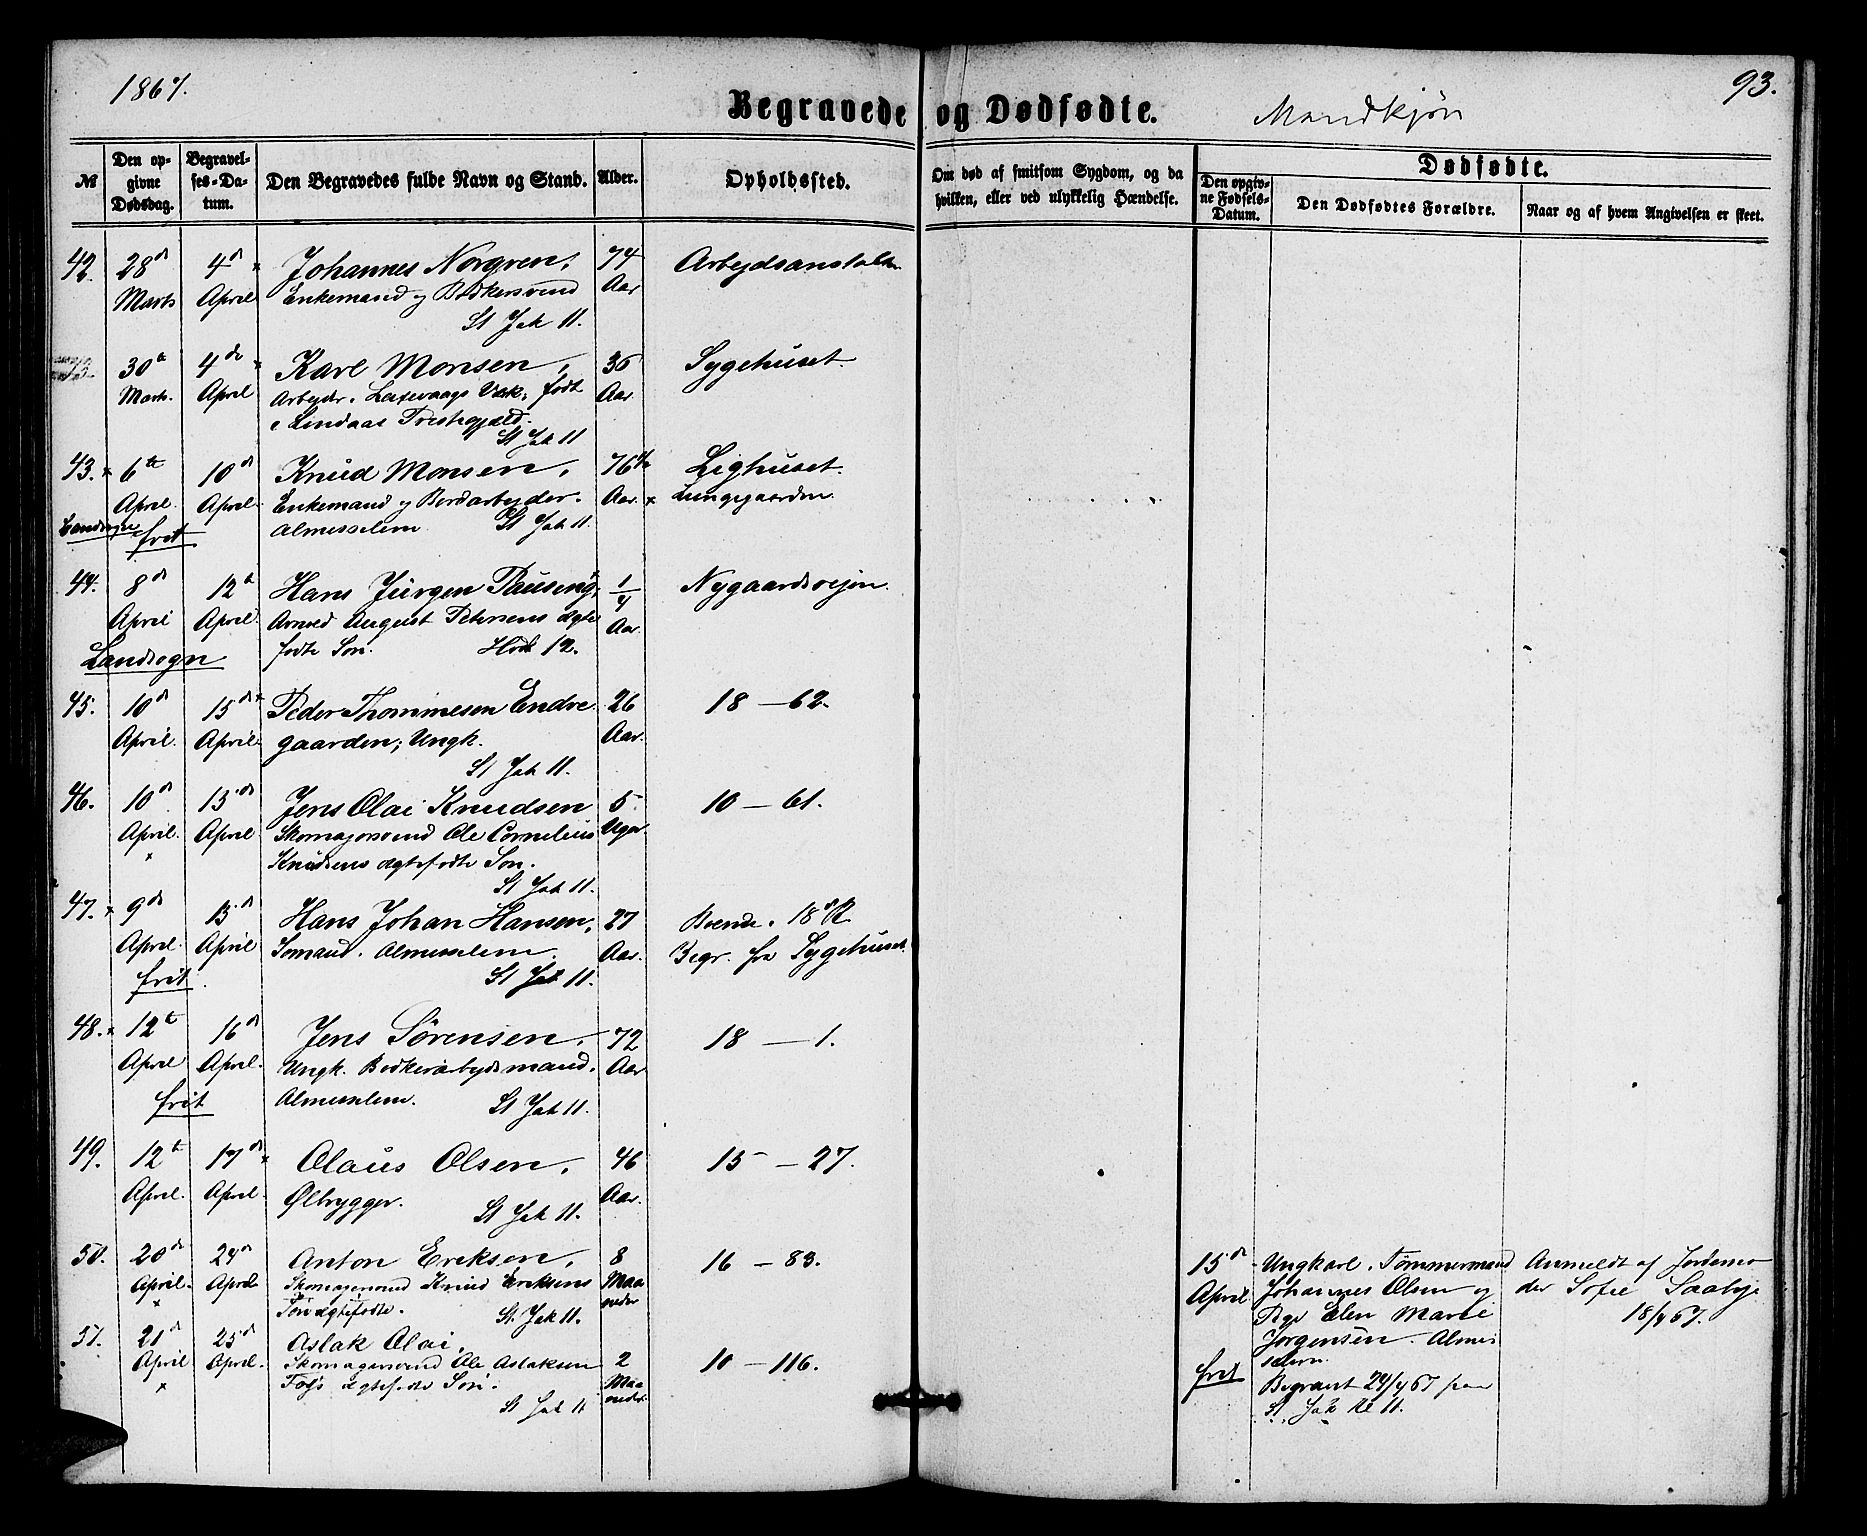 1867.
93.
Begravede og Dødfødte.
Mandkjøn
№
Den opgivne Dødsdag.
Begravelses-Datum.
Den Begravedes fulde Navn og Stand.
Alder.
Opholdssted.
Om død af smitsom Sygdom, og da hvilken, eller ved ulykkelig Hændelse.
Dødfødte.
Den opgivne Fødsels-Datum.
Den Dødfødtes Forældre.
Naar og af hvem Angivelsen er skeet.
42. 28d 4d Johannes Norgren, 74 Arbejdsanstalten
Marts April Enkemand og Bødkersvend Aar
St Jak 11.
30te 4de Karl Monsen, 36 Sygehuset.
Marts. April Arbejder. Laxevaags Værk, født Aar.
i Lindaas Præstegjæld.
St Jak 11
43. 6te 10d Knud Monsen, 76 Lighuset.
April. April. Enkemand og Bordarbejder. Aar. Lungegaarden.
Landsogn frit Almisselem St Jak 11.
44. 8d 12te Hans Jürgen 1/4 Nygaardsvejen.
April April. August Petersens ægte Aar.
Landsogn fødte Søn. 12.
45. 10d 15de Peder Thommesen Endre 26 18 – 62.
April. April. gaarden, Ungk. Aar.
St Jak 11.
46. 10d 15de Jens Olai Knudsen 5 10 – 61.
April. April Skomagersvend Ole Cornelius Uger.
Knudsens ægtefødte Søn.
St Jak 11.
47. 9de 15d Hans Johan Hansen, 27 18 R
April. April Sømand. Almisselem. Aar. Begr. fra Sygehuset.
frit. St Jak 11.
48. 12te 16d Jens Sörensen, 72 18 – 1.
April April. Ungk. Bødkerarbejdsmand. Aar
frit Almisselem. St Jak 11.
49. 12te 17de Olaus Olsen, 46 15 – 27.
April. April. Ølbrygger. Aar.
St Jak 11.
50. 20de 24d Anton Eriksen, 8 16 – 83.
April. April Skomagersvend Knud Eriksens Maa
Søn ægtefødte. St. Jak 11. neder
51. 21d 25d Aslak Olai,
April April. Skomagersvend Ole Aslaksen 2 10 – 116.
ægtefødte Søn. Maa
St Jak 11 neder.
15de Ungkarl, Tømmermand Anmeldt af Jordemo
April. Johannes Olsen og der Sofie Saabye
Pige Elen Marie 18/4 67.
Jørgensen. Almis
selem.
frit Begravet 24/4 67 paa
St. Jak Kl 11.